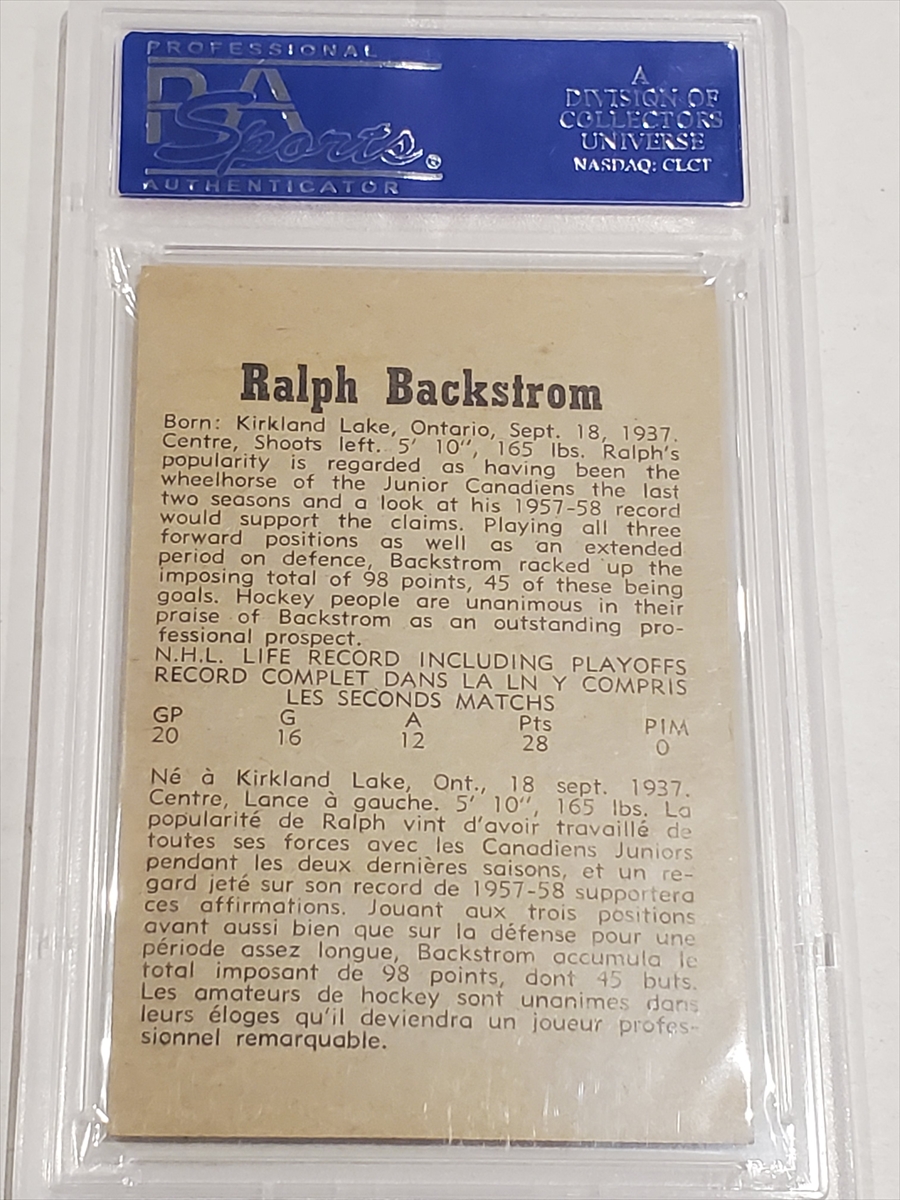 PROFESSIONAL
PSA
Sports®
AUTHENTICATOR
A
DIVISION OF
COLLECTORS
UNIVERSE
NASDAQ: CLCT
Ralph Backstrom
Born: Kirkland Lake, Ontario, Sept. 18, 1937.
Centre, Shoots left. 5' 10", 165 lbs. Ralph's
popularity is regarded as having been the
wheelhorse of the Junior Canadiens the last
two seasons and a look at his 1957-58 record
would support the claims. Playing all three
forward positions as well as an extended
period on defence, Backstrom racked up the
imposing total of 98 points, 45 of these being
goals. Hockey people are unanimous in their
praise of Backstrom as an outstanding pro-
fessional prospect.
N.H.L. LIFE RECORD INCLUDING PLAYOFFS
RECORD COMPLET DANS LA LN Y COMPRIS
LES SECONDS MATCHS
GP G A Pts PIM
20 16 12 28 0
Né à Kirkland Lake, Ont., 18 sept. 1937.
Centre, Lance à gauche. 5' 10", 165 lbs. La
popularité de Ralph vint d'avoir travaillé de
toutes ses forces avec les Canadiens Juniors
pendant les deux dernières saisons, et un re-
gard jeté sur son record de 1957-58 supportera
ces affirmations. Jouant aux trois positions
avant aussi bien que sur la défense pour une
période assez longue, Backstrom accumula le
total imposant de 98 points, dont 45 buts.
Les amateurs de hockey sont unanimes dans
leurs éloges qu'il deviendra un joueur profes-
sionnel remarquable.